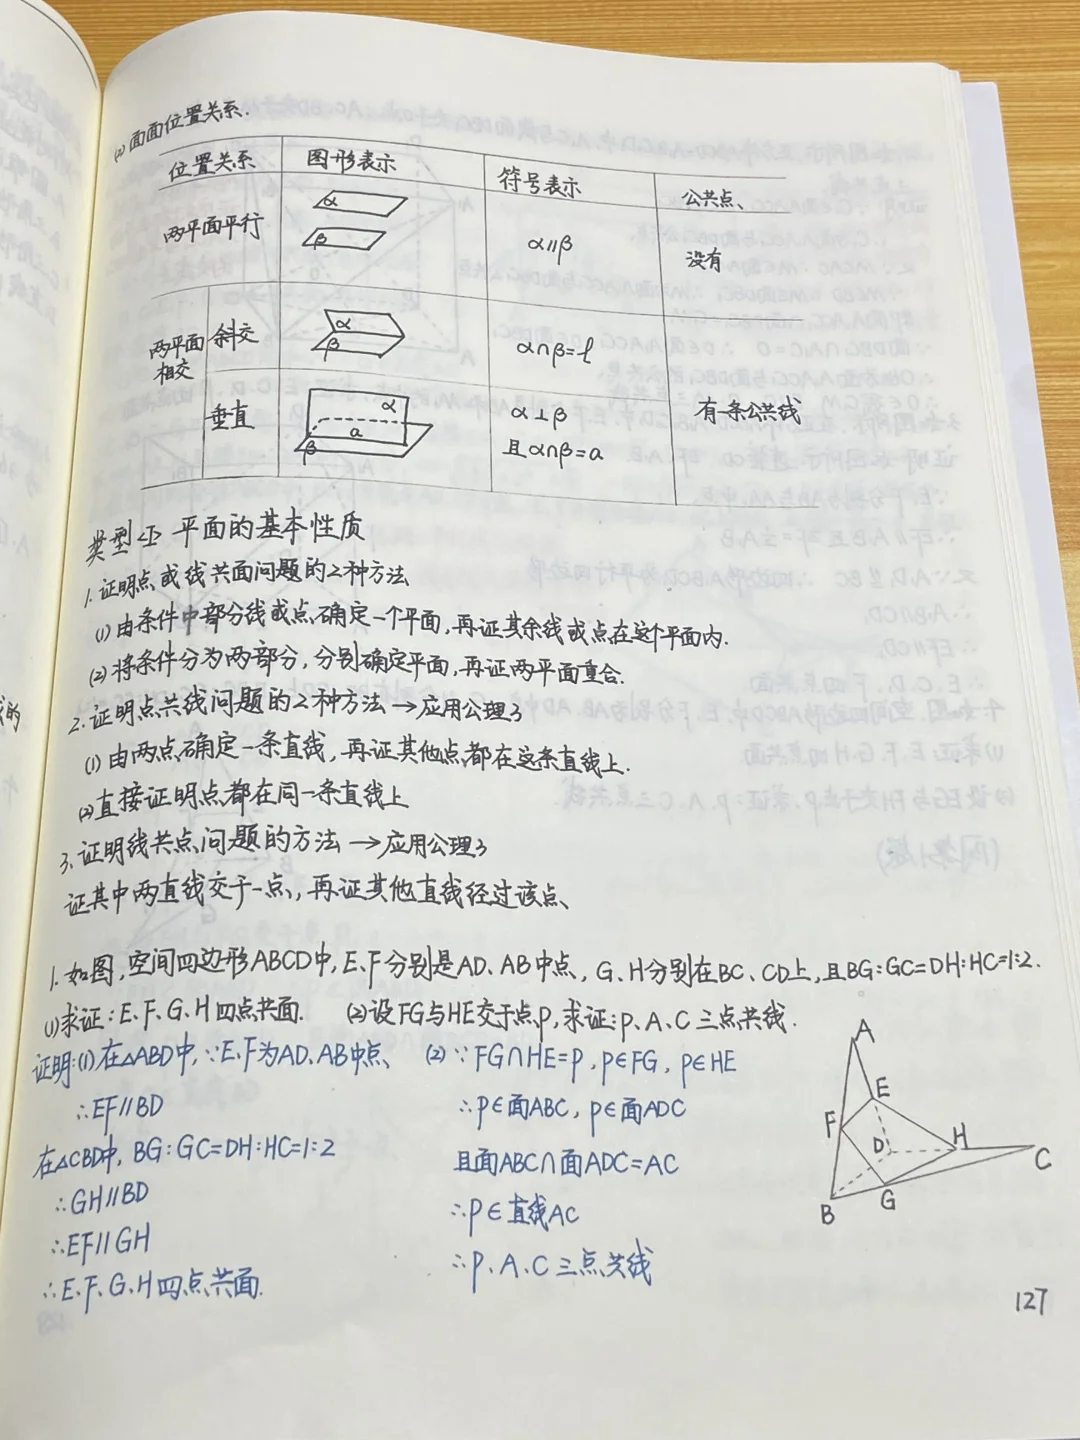 (2) 面面位置关系.
位置关系 图形表示 符号表示 公共点、
两平面平行 α β α∥β 没有
两平面相交 斜交 α β α∩β=l 有一条公共线
垂直 α a β α⊥β 且α∩β=a
类型<1> 平面的基本性质
1. 证明点或线共面问题的2种方法
(1) 由条件中部分线或点确定一个平面,再证其余线或点在这个平面内.
(2) 将条件分为两部分,分别确定平面,再证两平面重合.
2. 证明点共线问题的2种方法→应用公理3
(1) 由两点确定一条直线,再证其他点都在这条直线上.
(2) 直接证明点都在同一条直线上
3. 证明线共点问题的方法→应用公理3
证其中两直线交于一点,再证其他直线经过该点、
1. 如图,空间四边形ABCD中,E、F分别是AD、AB中点,G、H分别在BC、CD上,且BG:GC=DH:HC=1:2.
(1)求证:E、F、G、H四点共面. (2)设FG与HE交于点P,求证:P、A、C三点共线.
证明:(1)在△ABD中,∵E、F为AD、AB中点、
∴EF∥BD
在△CBD中, BG:GC=DH:HC=1:2
∴GH∥BD
∴EF∥GH
∴E、F、G、H四点共面.
(2)∵FG∩HE=P,P∈FG,P∈HE
∴P∈面ABC,P∈面ADC
且面ABC∩面ADC=AC
∴P∈直线AC
∴P、A、C三点共线
A
E
F
D
H
C
B
G
127